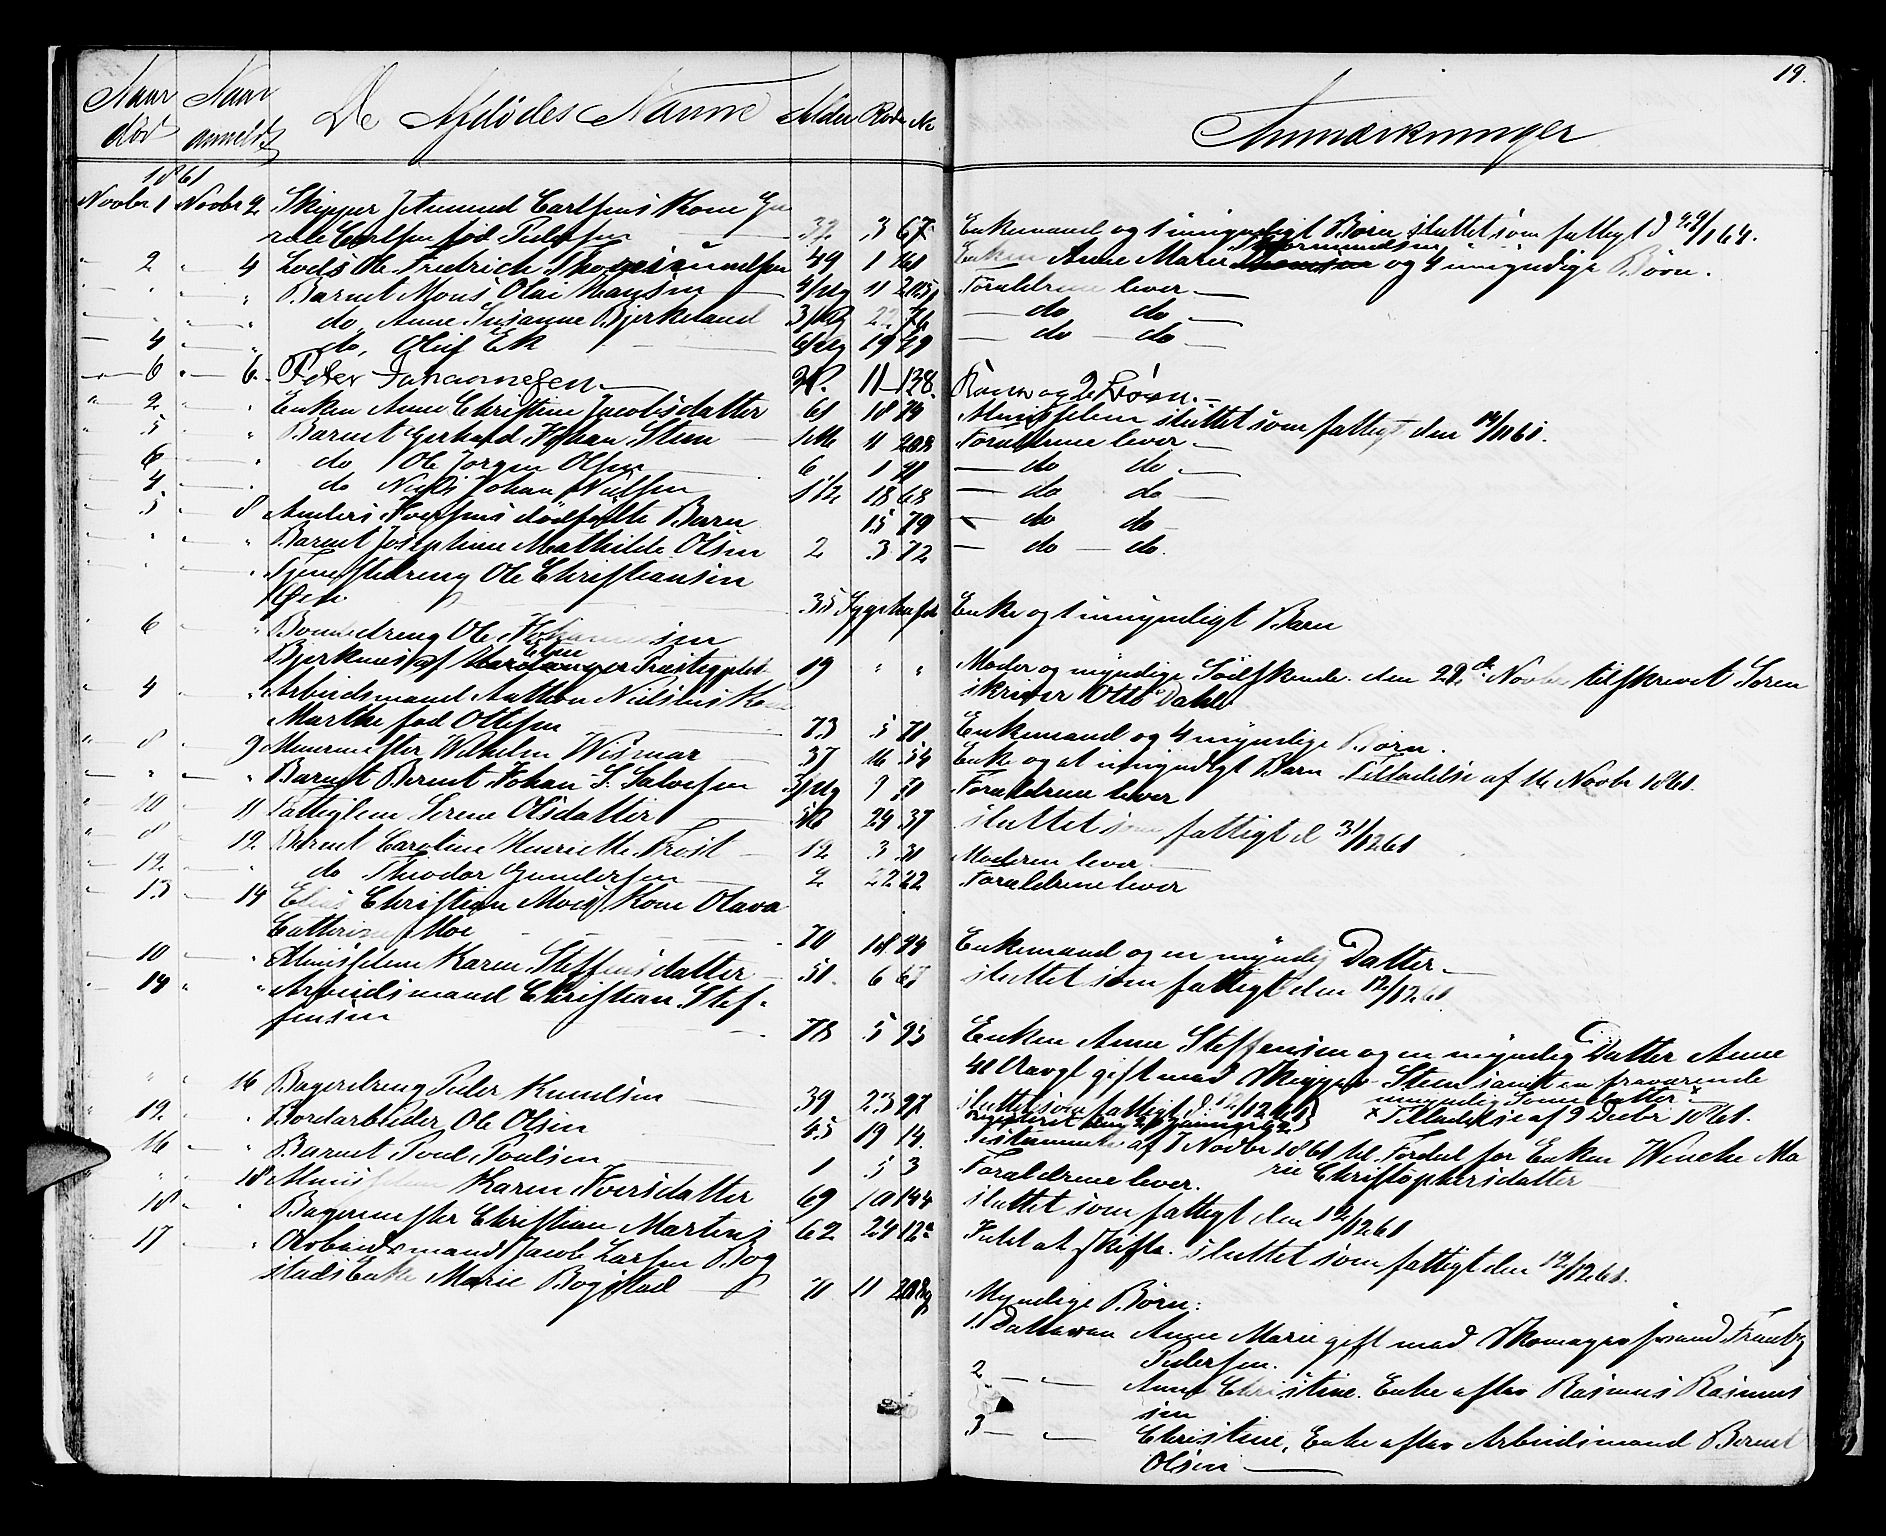 19.
Naar død Naar anmeldt De Afdødes Navne Alder Rode No Anmærkninger
1861
Novbr 1 Novbr 2 Skipper Amund Carlsens Kone Gu
rele Carlsen fød Pedersen 32 3 67 Enkemand og 1 umyndigt Barn, sluttet som fattigt d 29/1 64.
2 " 4 Lods Ole Fredrich Thormundsen 49 1 Enken Anne Marie Thormundsen og 4 umyndige Børn.
" " Barnet Mons Olai Hansen 11 Forældrene lever
" " do Anne Susanne Bjerkeland do do
4 " do, Oluf Ek 19 do do
6 6 Peter Johannesen 11 138 Kone og 2 Børn.
2 " Enken Anne Christine Jacobsdatter 61 18 Almisselem sluttet som fattigt den
5 " Barnet Gerhard Johan Stem 11 208 Forældrene lever
6 " do Ole Jørgen Olsen 6 1 do do
4 " do Niels Johan Nielsen 1 1/2 18 68 do do
5 8 Anders Iversens dødfødte Barn 15 79 do do
" " Barnet Josephine Mathilde Olsen 2 3 72 do do.
" " Tjenestedreng Ole Christiansen
Øen 35 Sygehuset Enke og 1 umyndigt Barn
6 " Bondedreng Ole Johannesen
Bjerknes af Præstegjeld 19 " " Moder og myndige Sødskende. den 22de Novbr tilskrevet Soren
skriver Otto Dahl
4 " Arbeidsmand Anthon Nielsens Kone
Marthe fød Ottesen 73 5 71 Enkemand og 4 myndige Børn.
8 9 Muurmester Wilhelm Wismar 37 16 54 Enke og et umyndigt Barn. Tilladelse af 16 Novbr 1861.
" " Barnet Bernt Johan S. Salvesen 9 51 Forældrene lever
10 11 Fattiglem Serine Olsdatter 24 37 sluttet som fattigt d 31/12 61
8 12 Barnet Caroline Henriette Frost 12 3 31 Moderen lever
12 " do Theodor Gundersen 2 22 22 Forældrene lever
13 14 Elias Christian Moes Kone Olava
Cathrine Moe 70 18 Enkemand og en myndig Datter
10 " Almisselem Karen Steffensdatter 51. 6 67 sluttet som fattigt den 12/12 61
14 " Arbeidsmand Christian Stef-
fensen 78 5 93 Enken Anne Steffensen og en myndig Datter Anne
41 Aar gl gift med Skipper Steen samt en fraværende
umyndig Sønnedatter
" 16 Bagerdreng Peder Knudsen 39 23 97 sluttet som fattigt d. 12/12 61 + Tilladelse af 9 Decbr 1861.
12 " Bordarbeider Ole Olsen 45 19 14. Testamente af 7 Novbr 1861 til Fordel for Enken Wenche Ma
rie Christophersdatter
16 " Barnet Poul Poulsen 1 5 3 Forældrene lever.
" 18 Almisselem Karen Iversdatter 69 10 144 sluttet som fattigt den 12/12 61
18 " Bagermester Christian Martens 62 24 Intet at skifte. sluttet som fattigt den 12/12 61.
17 " Arbeidsmand Jacob Larsen Bog
stads Enke Marie Bogstad 71 11 Myndige Børn:
1. Datteren Anne Marie gift med Skomagersvend Frants
Pedersen.
2 Anne Christine. Enke efter Rasmus Rasmus
sen
3 Christine, Enke efter Arbeidsmand Bernt
Olsen